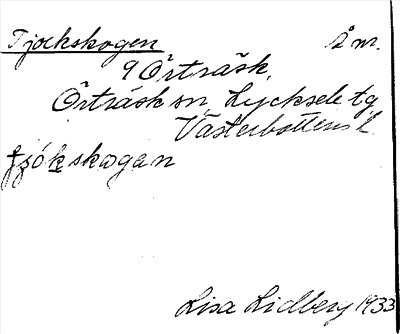 Tjockskogen
9 Örträsk,
Örträsk sn, Lycksele tg
Västerbottens l.
skogan
Lisa Lidberg 1933